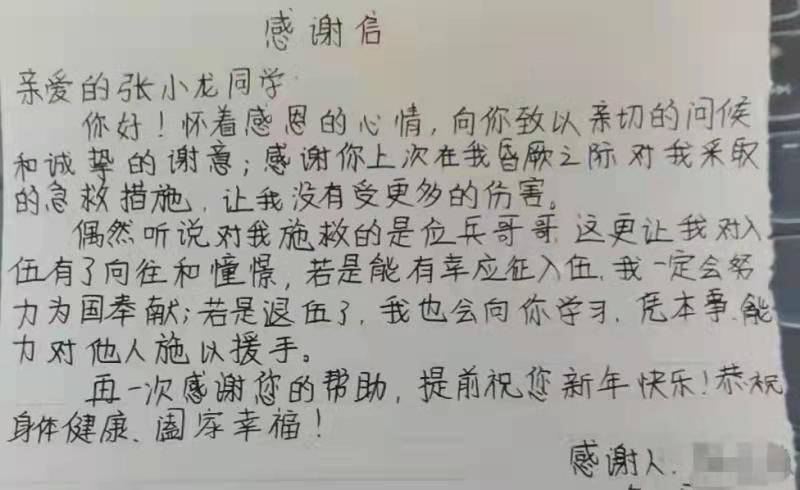 感谢信
亲爱的张小龙同学
你好！怀着感恩的心情，向你致以亲切的问候
和诚挚的谢意；感谢你上次在我昏厥之际对我采取
的急救措施，让我没有受更多的伤害。
偶然听说对我施救的是位兵哥哥，这更让我对入
伍有了向往和憧憬，若是能有幸应征入伍，我一定会努
力为国奉献；若是退伍了，我也会向你学习，凭本事、能
力对他人施以援手。
再一次感谢您的帮助，提前祝您新年快乐！恭祝
身体健康、阖家幸福！
感谢人：